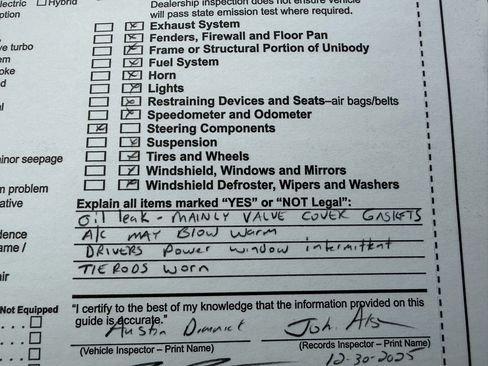 lectric ☐ Hybrid
ption
Dealership inspection does not ensure vehicle
will pass state emission test where required.
Exhaust System
Fenders, Firewall and Floor Pan
ve turbo
Frame or Structural Portion of Unibody
em
Fuel System
oke
Horn
d
Lights
Restraining Devices and Seats–air bags/belts
Speedometer and Odometer
Steering Components
Suspension
inor seepage
Tires and Wheels
Windshield, Windows and Mirrors
m problem
Windshield Defroster, Wipers and Washers
ative
Explain all items marked "YES" or "NOT Legal":
Oil leak - MAINLY VALVE COVER GASKETS
dence
A/C MAY Blow Warm
ame /
DRIVERS Power Window intermittent
air
TIE RODS Worn
Not Equipped
"I certify to the best of my knowledge that the information provided on this
guide is accurate."
Austin
(Vehicle Inspector – Print Name)
(Records Inspector – Print Name)
12-30-2025